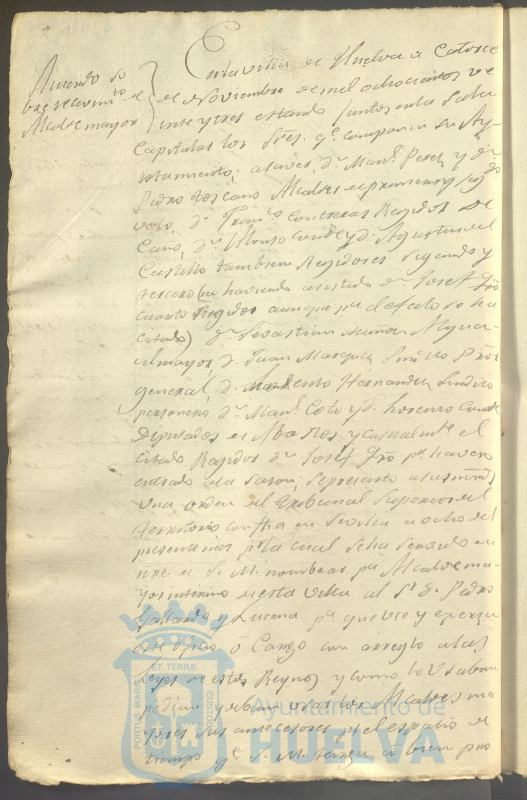 Acuerdo so
bre recevimto. de
Alcalde mayor
En la villa de Huelva a Catorce
de Noviembre de mil ochocientos ve
inte y tres estando juntos en la Sala
Capitular los Sres. qe. componen su Ay
untamiento; a saver, Dn. Manl. Perez y Dn.
Pedro Toscano Alcaldes de primero y segdo
voto, Dn. Franco. Contreras Regidor De
Cano, Dn. Alonso Conde y Dn. Agustin del
Castillo tambien Regidores segundo y
tercero (no haviendo asistido Dn. Josef
cuarto Regidor aunque pa. el efecto se ha
citado) Dn. Sebastian Muñoz Alguacil
mayor, Dn. Juan Marquez Sindico Pror.
general, Dn. Hernandez Sindico
personero Dn. Manl. Coto y Dn. Lorenzo Conde
Diputados de Abastos y casualmte. el
citado Regidor Dn. Josef pr. haver
entrado a la sazon; se presento a sus mrds.
una orden del Tribunal Superior del
territorio con fha en Sevilla a ocho del
presente mes pr. la cual se ha servido en
nre. de S. M. nombrar pa. Alcalde ma
yor interino de esta villa al Sr. D. Pedro
Gallardo y Lucena pa. que use y exerza
este oficio o Cargo con arreglo a las
Leyes de estos Reynos y como lo Usaban
podian y debian usar los Alcaldes ma
yores sus antecesores pr. el espacio de
tiempo qe. S. M. tenga a bien pues
PORTUS MARIS ET TERRAE CUSTODIA
Ayuntamiento de
HUELVA